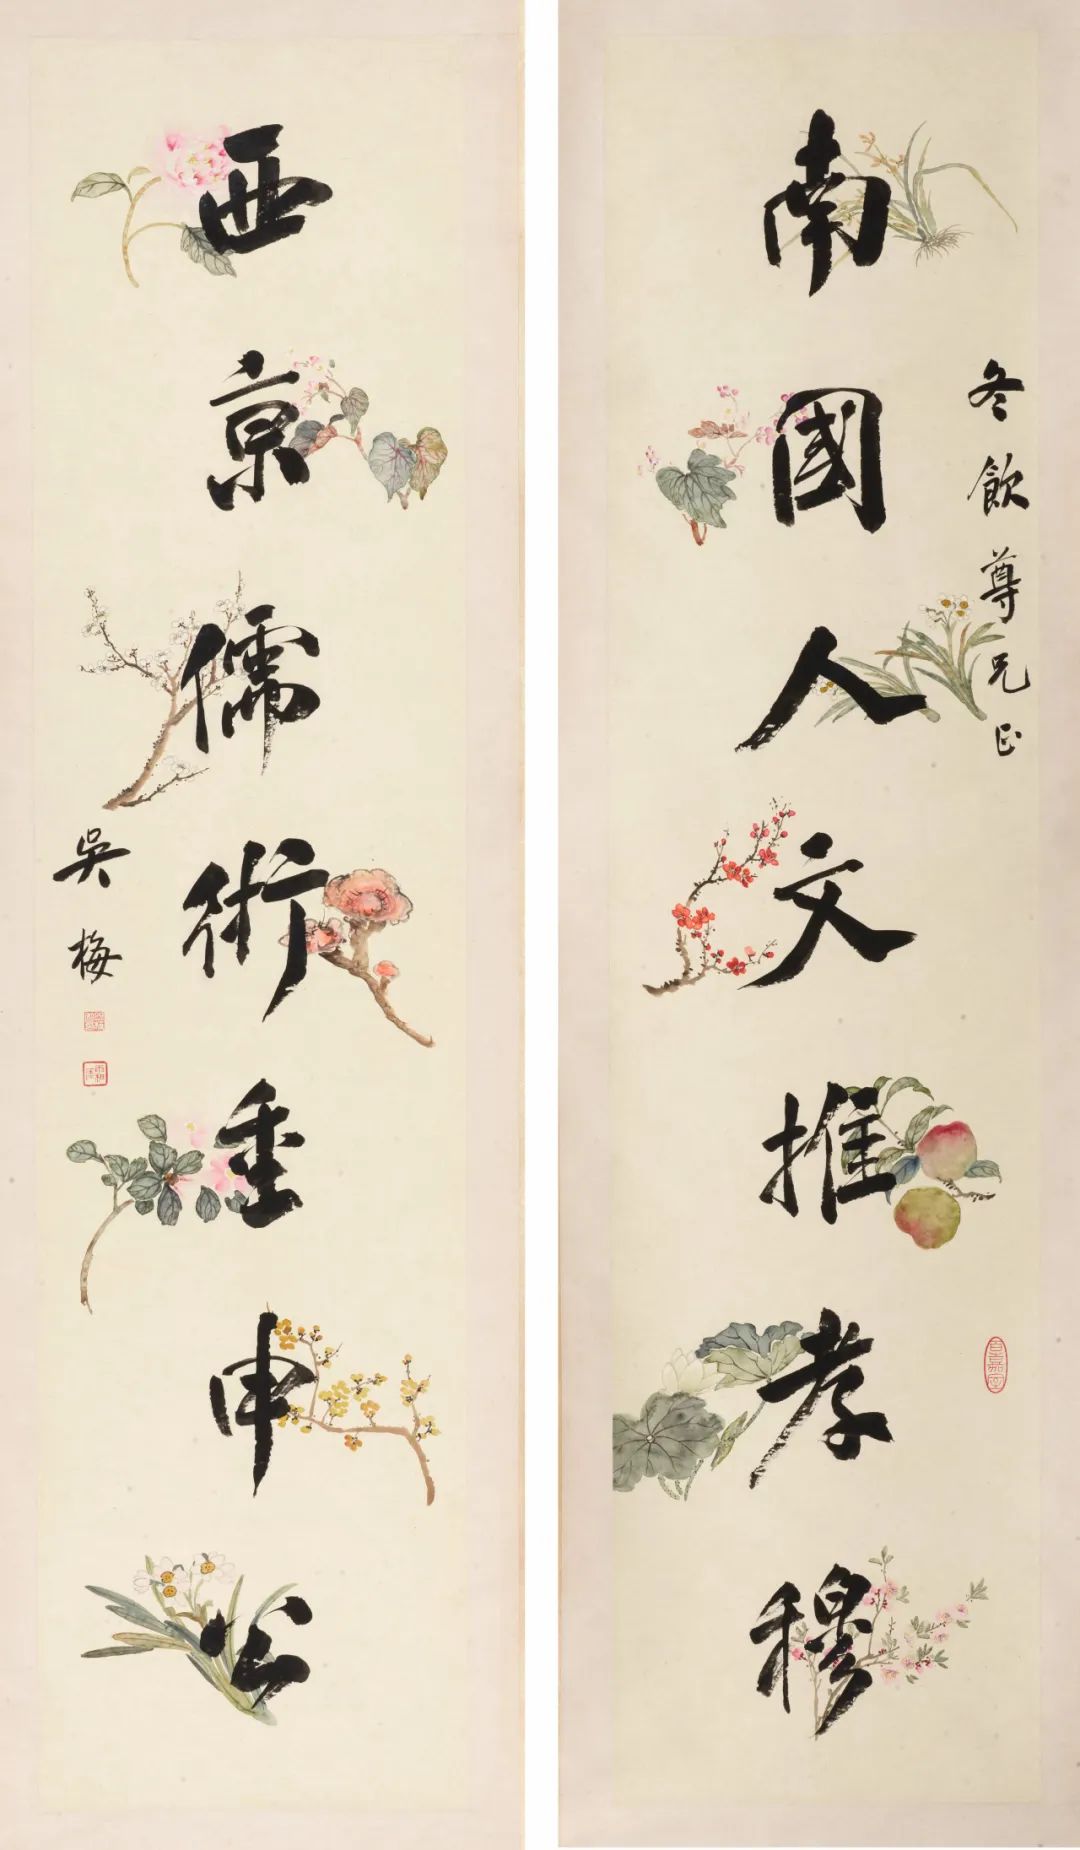 冬飲尊兄正
百嘉室
南國人文推孝穆
西京儒術重申公
吳梅